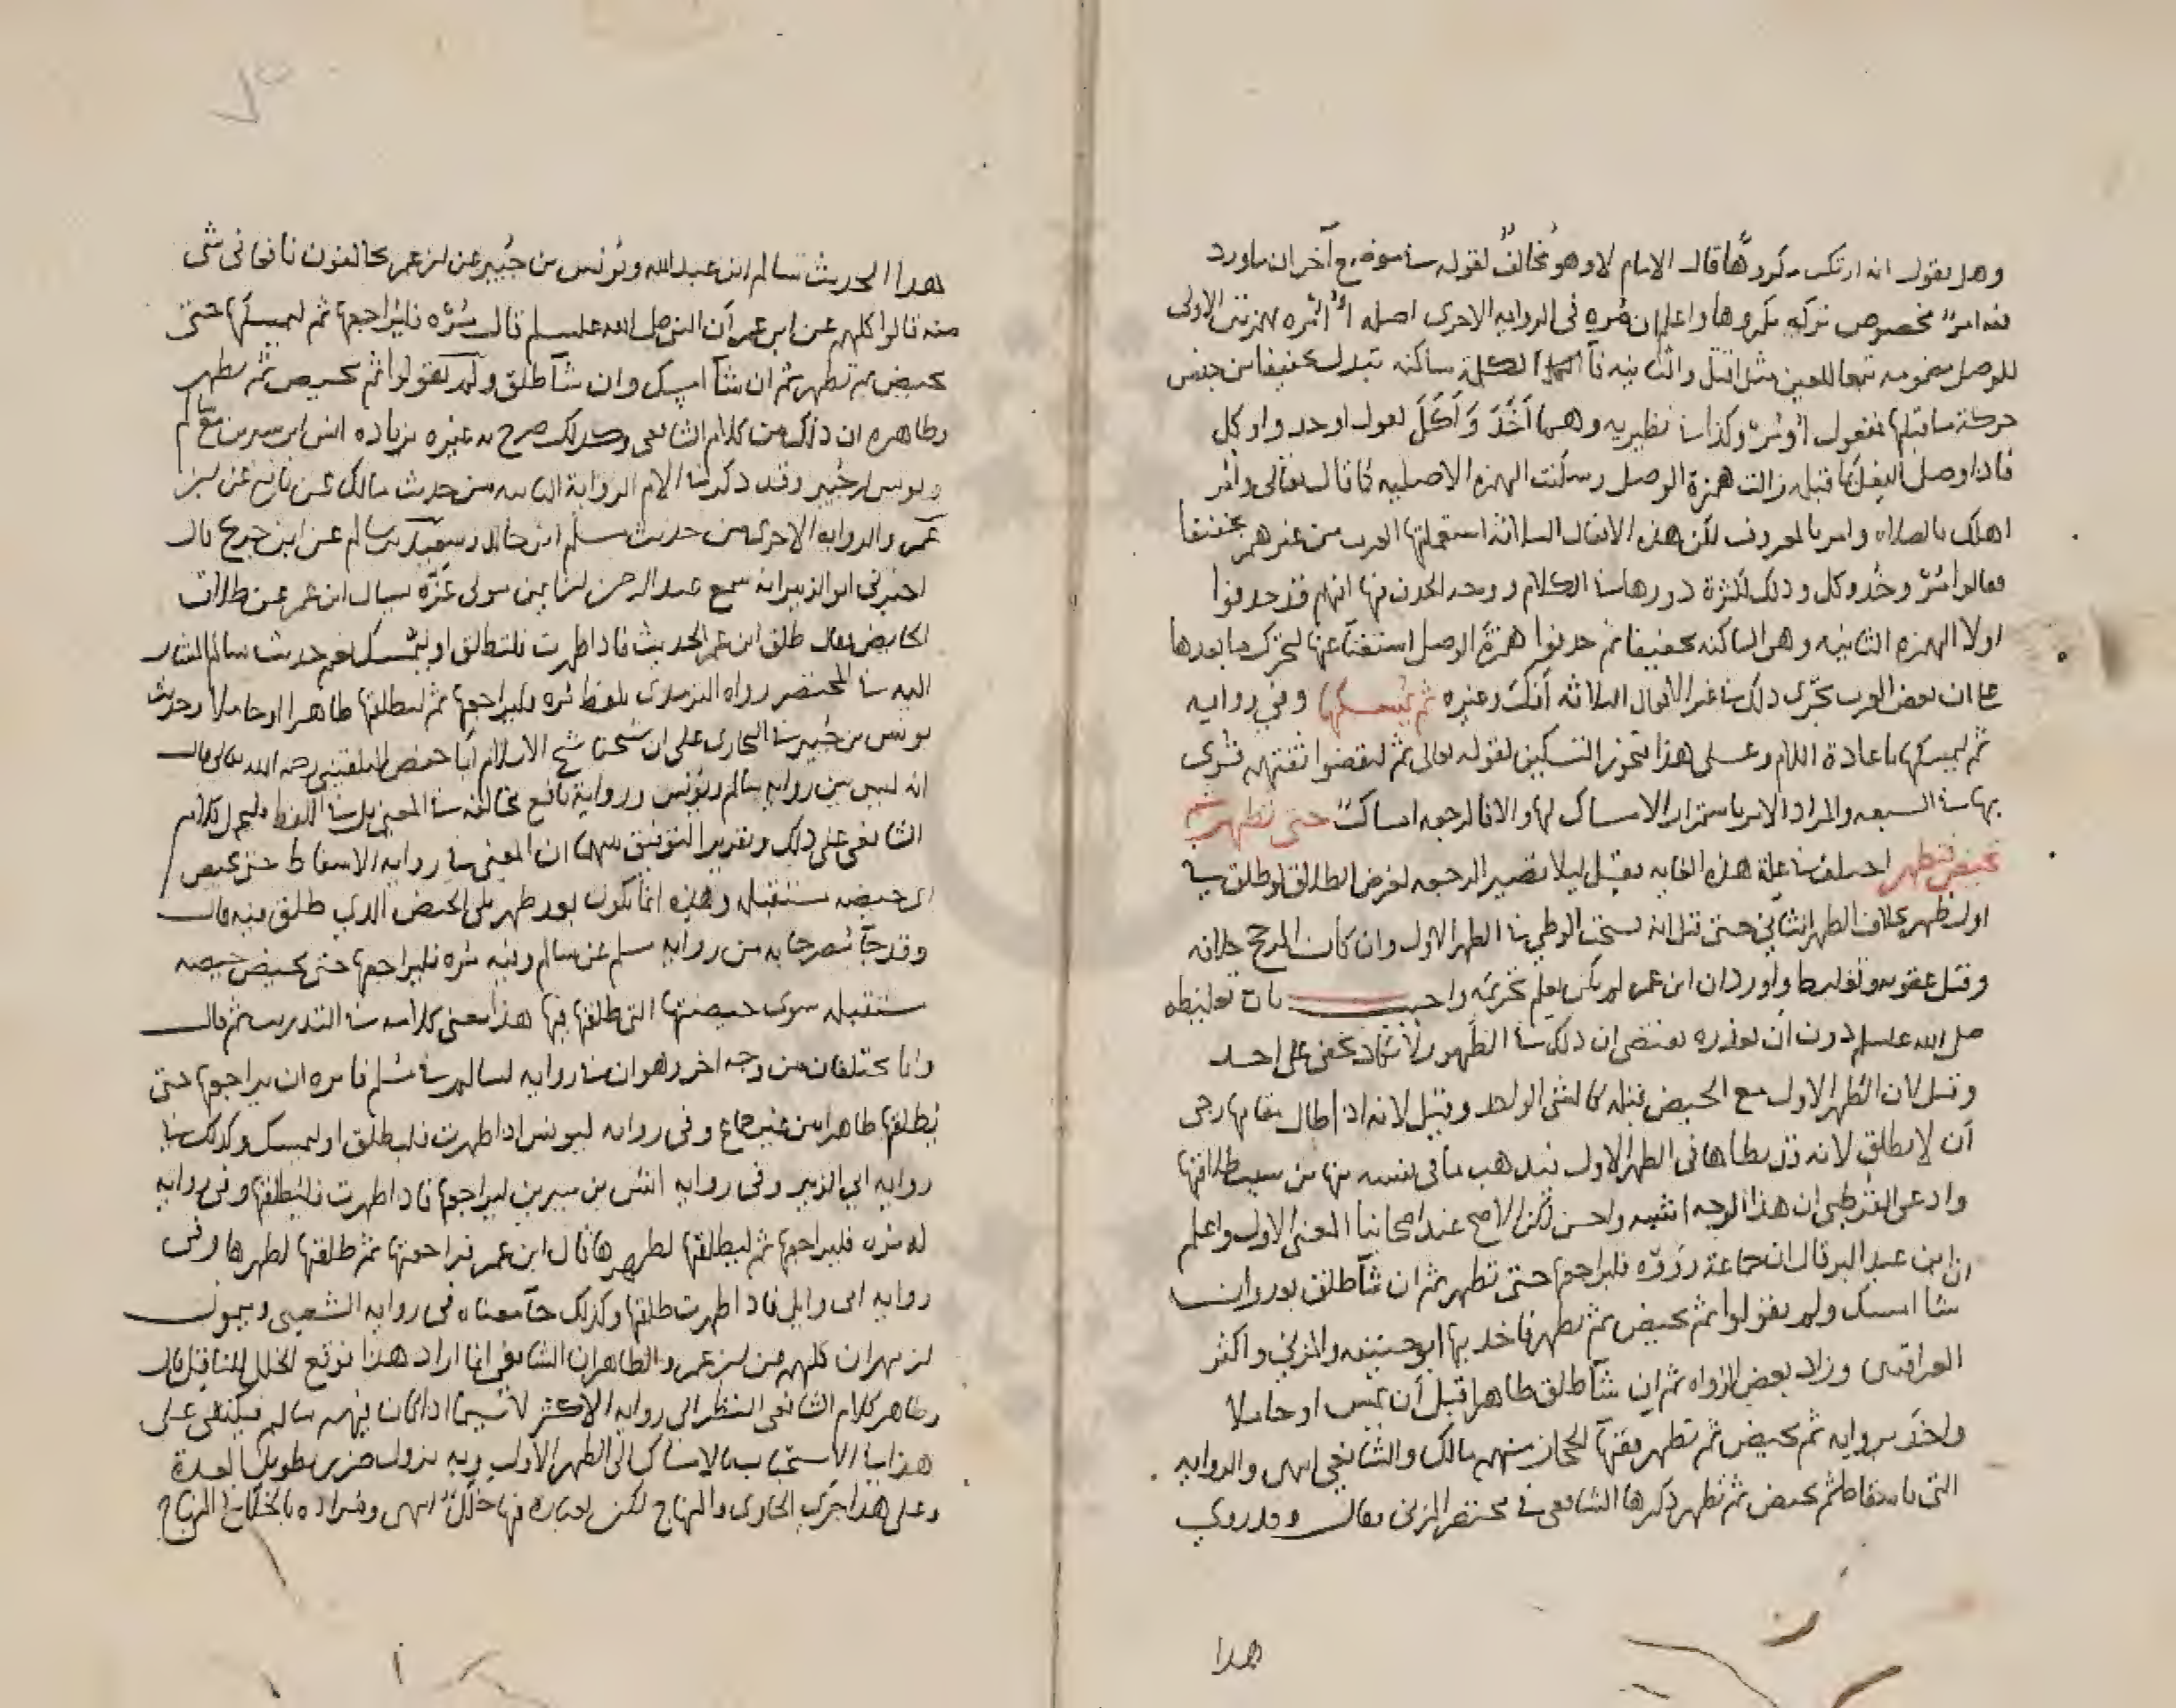 وهل يقول انه ارتكب مكروها قال الامام لا وهو مخالف لقوله في موضع آخر ان ما ورد
فيه امر مخصوص تركه مكروها واعلم ان مره في الرواية الاخرى اصله أأمره بهمزتين الاولى
للوصل مضمومه تبعا للعين مثل اقتل والثانيه فآ الكلمة ساكنه تبدل تخفيفا من جنس
حركة ما قبلها فتقول اُومُر وكذا في نظيريه وهما اَخَذَ وَاَكَلَ تقول اوخذ واوكل
فاذا وصل الفعل بما قبله زالت همزة الوصل وسكنت الهمزه الاصليه كما قال تعالى وأمر
اهلك بالصلاه وامر بالمعروف لكن هذه الافعال الثلاثة استعملتها العرب من غير همز تخفيفا
فقالوا مُرْ وخُذ وكل وذلك لكثرة دورها في الكلام ووجه الحذف فيها انهم قد حذفوا
اولا الهمزه الثانيه وهى الساكنه تخفيفا ثم حذفوا همزة الوصل استغنآ عنها لتحرك ما بعدها
على ان بعض العرب يجرى ذلك في غير الافعال الثلاثه وغيره ثم يُمسكها وفي روايه
ثم ليمسكها باعادة اللام وعلى هذا يجوز التسكين لقوله تعالى ثم ليقضوا تفثهم قرى
بها في السبعه والمراد الامر باستمرار الامساك لها والا فالرجعه امساك حتى تطهر ثم
تحيض فتطهر اختلف في علة هذه الغايه فقيل ليلا تصير الرجعه لغرض الطلاق لو طلق في
اول طهر بخلاف الطهر الثاني حتى قيل انه يستحب الوطي في الطهر الاول وان كان المرجح خلافه
وقيل عقوبه وتغليظا واورد ان ابن عمر لم يكن يعلم تحريمه واجيب بان تغليظه
صلى الله عليه وسلم دون ان يعذره يقتضى ان ذلك في الظهور لا يكاد يخفى على احد
وقيل لان الطهر الاول مع الحيض قبله كالشى الواحد وقيل لانه اذا طال مقامها رجى
أن لا يطلق لانه قد يطاها فى الطهر الاول فيذهب ما فى نفسه منها من سبب طلاقها
وادعى القرطبي ان هذا الوجه اشبه واحسن لكن الاصح عند اصحابنا المعنى الاول واعلم
ان ابن عبد البر قال ان جماعة رَوَوْه فليراجعها حتى تطهر ثم ان شآ طلق بعد وان
شا امسك ولم يقولوا ثم تحيض ثم تطهر فاخذ بها ابو حنيفه والمزني واكثر
العراقيين وزاد بعض الرواه ثم ان شآ طلق طاهرا قبل أن يمس او حاملا
واخذ بروايه ثم تحيض ثم تطهر فقها الحجاز منهم مالك والشافعي انتهى والروايه
التى باسقاط ثم تحيض ثم تطهر ذكرها الشافعي فى مختصر المزني فقال وقد روي
هذا
هذا الحديث سالم ابن عبد الله ويونس بن جُبير عن ابن عمر يخالفون نافعا فى شى
منه قالوا كلهم عن ابن عمر أن النبي صلى الله عليه وسلم قال مُرْه فليراجعها ثم ليمسكها حتى
تحيض ثم تطهر ثم ان شآ امسك وان شآ طلق ولم يقولوا ثم تحيض ثم تطهر
وظاهره ان ذلك من كلام الشافعى وكذلك صرح به غيره بزياده انس ابن سيرين مع سالم
ويونس ابن جُبير وقد ذكر في الام الرواية الثانيه من حديث مالك عن نافع عن ابن
عمر والروايه الاخرى من حديث مسلم ابن خالد وسعيد بن سالم عن ابن جريج قال
اخبرنى ابو الزبير انه سمع عبد الرحمن بن ايمن مولى عَزَّه يسال ابن عمر عن طلاق
الحايض فقال طلق ابن عمر الحديث فاذا طهرت فلتطلق او ليُمسك نعم حديث سالم المشار
اليه في المختصر رواه الترمذى بلفظ مُره فليراجعها ثم ليطلقها طاهرا او حاملا وحديث
يونس بن جُبير في البخارى على ان شيخنا شيخ الاسلام أبا حفص البلقينى رحمه الله تعالى قال
انه ليس بين روايه سالم ويونس ورواية نافع مخالفه في المعنى بل في اللفظ فليحمل كلام
الشافعى على ذلك وتقرير التوفيق بينهما ان المعنى في روايه الاسقاط حتى تحيض
اى حيضه مستقبله وهذه انما تكون بعد طهر يلى الحيض الذي طلق فيه قال
وقد جآ مُصرحا به من روايه مسلم عن سالم وفيه مُره فليراجعها حتى تحيض حيضه
مستقبله سوى حيضتها التى طلقها فيها هذا معنى كلامه في التدريب ثم قال
وانما يختلفان من وجه اخر وهو ان في روايه لسالم في مُسلم فامره ان يراجعها حتى
يُطلقها طاهرا من غير جماع وفى روايه ليونس اذا طهرت فليطلق او ليمسك وكذلك في
روايه ابي الزبير وفى روايه انس بن سيرين ليراجعها فاذا طهرت فليُطلقها وفى روايه
له مره فليراجعها ثم ليطلقها لطهرها قال ابن عمر فراجعتها ثم طلقها لطهرها وفى
روايه ابى وايل فاذا طهرت طلقها وكذلك جآ معناه فى روايه الشعبى وميمون
ابن مهران كلهم عن ابن عمر والظاهر ان الشافعى انما اراد هذا فوقع الخلل للناقل قال
وظاهر كلام الشافعى النظر الى روايه الاكثر لا سيما اذا كان فيهم سالم فيكتفى على
هذا في الاستحباب بالامساك الى الطهر الأول وبه يزول ضرر تطويل العدة
وعلى هذا جرى الحاوى والمنهاج لكن لعباره فيها خلل انتهى ومراده بالخلل في المنهاج